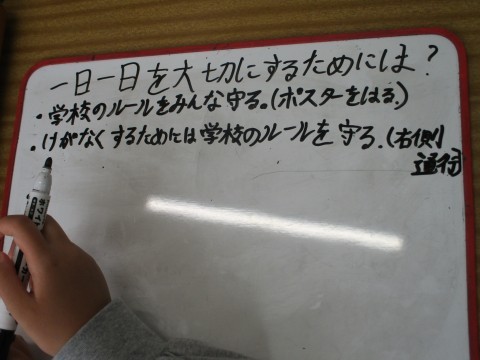 一日一日を大切にするためには?
・学校のルールをみんな守る。(ポスターをはる。)
・けがなくするためには学校のルールを守る。(右側
通行)